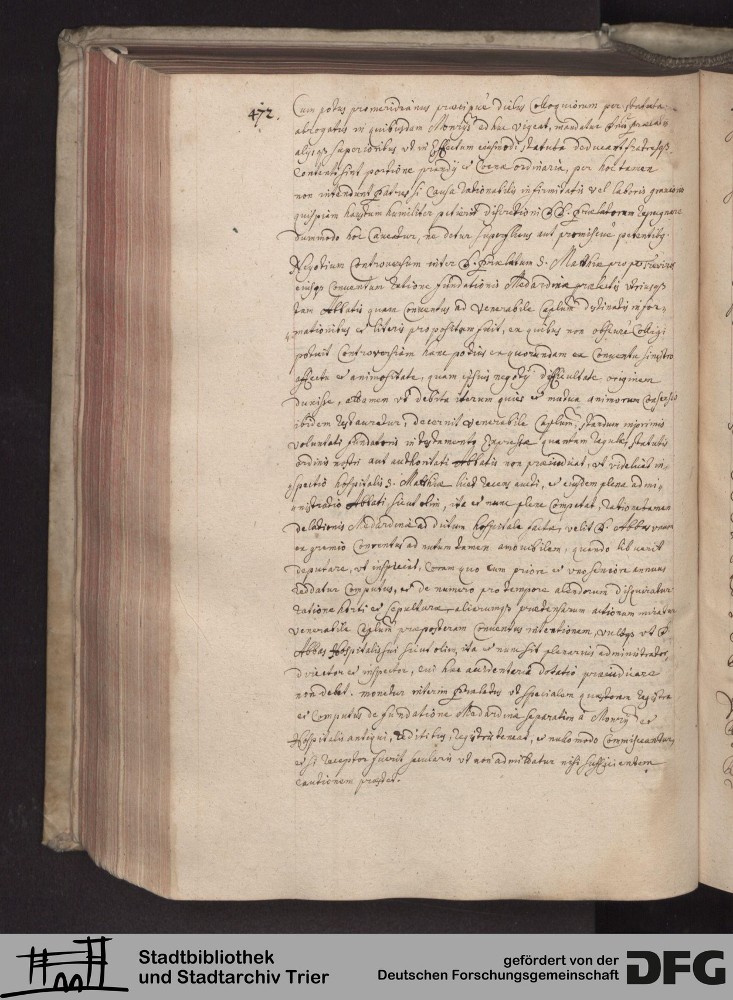 472.
Cum potus promeridianus praecipuè diebus Colloquiorum per statuta
abrogatus in quibusdam Monrijs adhuc vigeat, mandatur
alijsq; superioribus vt in Effectum eiusmodi statuta deducant fratresq;
Contenti sint portione prandij et Coena ordinaria, per hoc tamen
non intendunt Patres si Causa rationabilis infirmitatis vel laboris
quispiam haustum humiliter petierit discretioni Praelatorum repugnare
dummodo hoc Caueatur, ne detur superfluus aut promiscuè petentibq.
Negotium Controuersum inter D. Praelatum S. Matthiae prope Treviros
eiusq; Conuentum ratione fundationis Medardinae praelectis vtriusq;
tam Abbatis quam Conuentus ad venerabile Caplum destinatis infor-
mationibus et literis propositum fuit, ex quibus non obscure Colligi
potuit Controversiam hanc potius ex quorundam ex Conuentu sinistro
affectu et animositate, quam ipsius negotij difficultate originem
duxisse, attamen vt debita iterum quies et mutua animorum
ibidem restauretur, decernit venerabile Caplum, standum inprimis
voluntati fundatoris in testamento Expressae quantum regulae, statutis
ordinis nostri aut authoritati Abbatis non praeiudicat, vt videlicet in-
spectio hospitalis S. Matthiae licet recens aucti, et eiusdem plena admi-
nistratio Abbati sicut olim, ita et nunc plene Competat, ratione tamen
Medardinae ad dictum hospitale factae, velit D. Abbas vnum
ex gremio Conventus ad nutum tamen amouibilem, quando libuerit
deputare, vt inspiciat, Coram quo cum priore et vno seniore annuus
reddatur Computus, et de numero pro tempore alendorum disquiratur
ratione horti et sepulturae aliorumq; praetensarum actionum miratur
venerabile Caplum praeposteram Conuentus intentionem, vultq; vt D.
Abbas Hospitalis sui sicut olim, ita et nunc sit plenarius administrator,
director et inspector, cui haec accidentaria dotatio praeiudicare
non debet. monetur interim Praelatus vt specialem quaestorem registra
et Computus de fundatione Medardina separatim à Monrij et
Hospitalis antiqui, redditibus, registris teneat, et nullo modo Commisceantur,
et si receptor fuerit secularis vt non admittatur nisi sufficientem
Cautionem praestet.
Stadtbibliothek
und Stadtarchiv Trier
gefördert von der
Deutschen Forschungsgemeinschaft
DFG